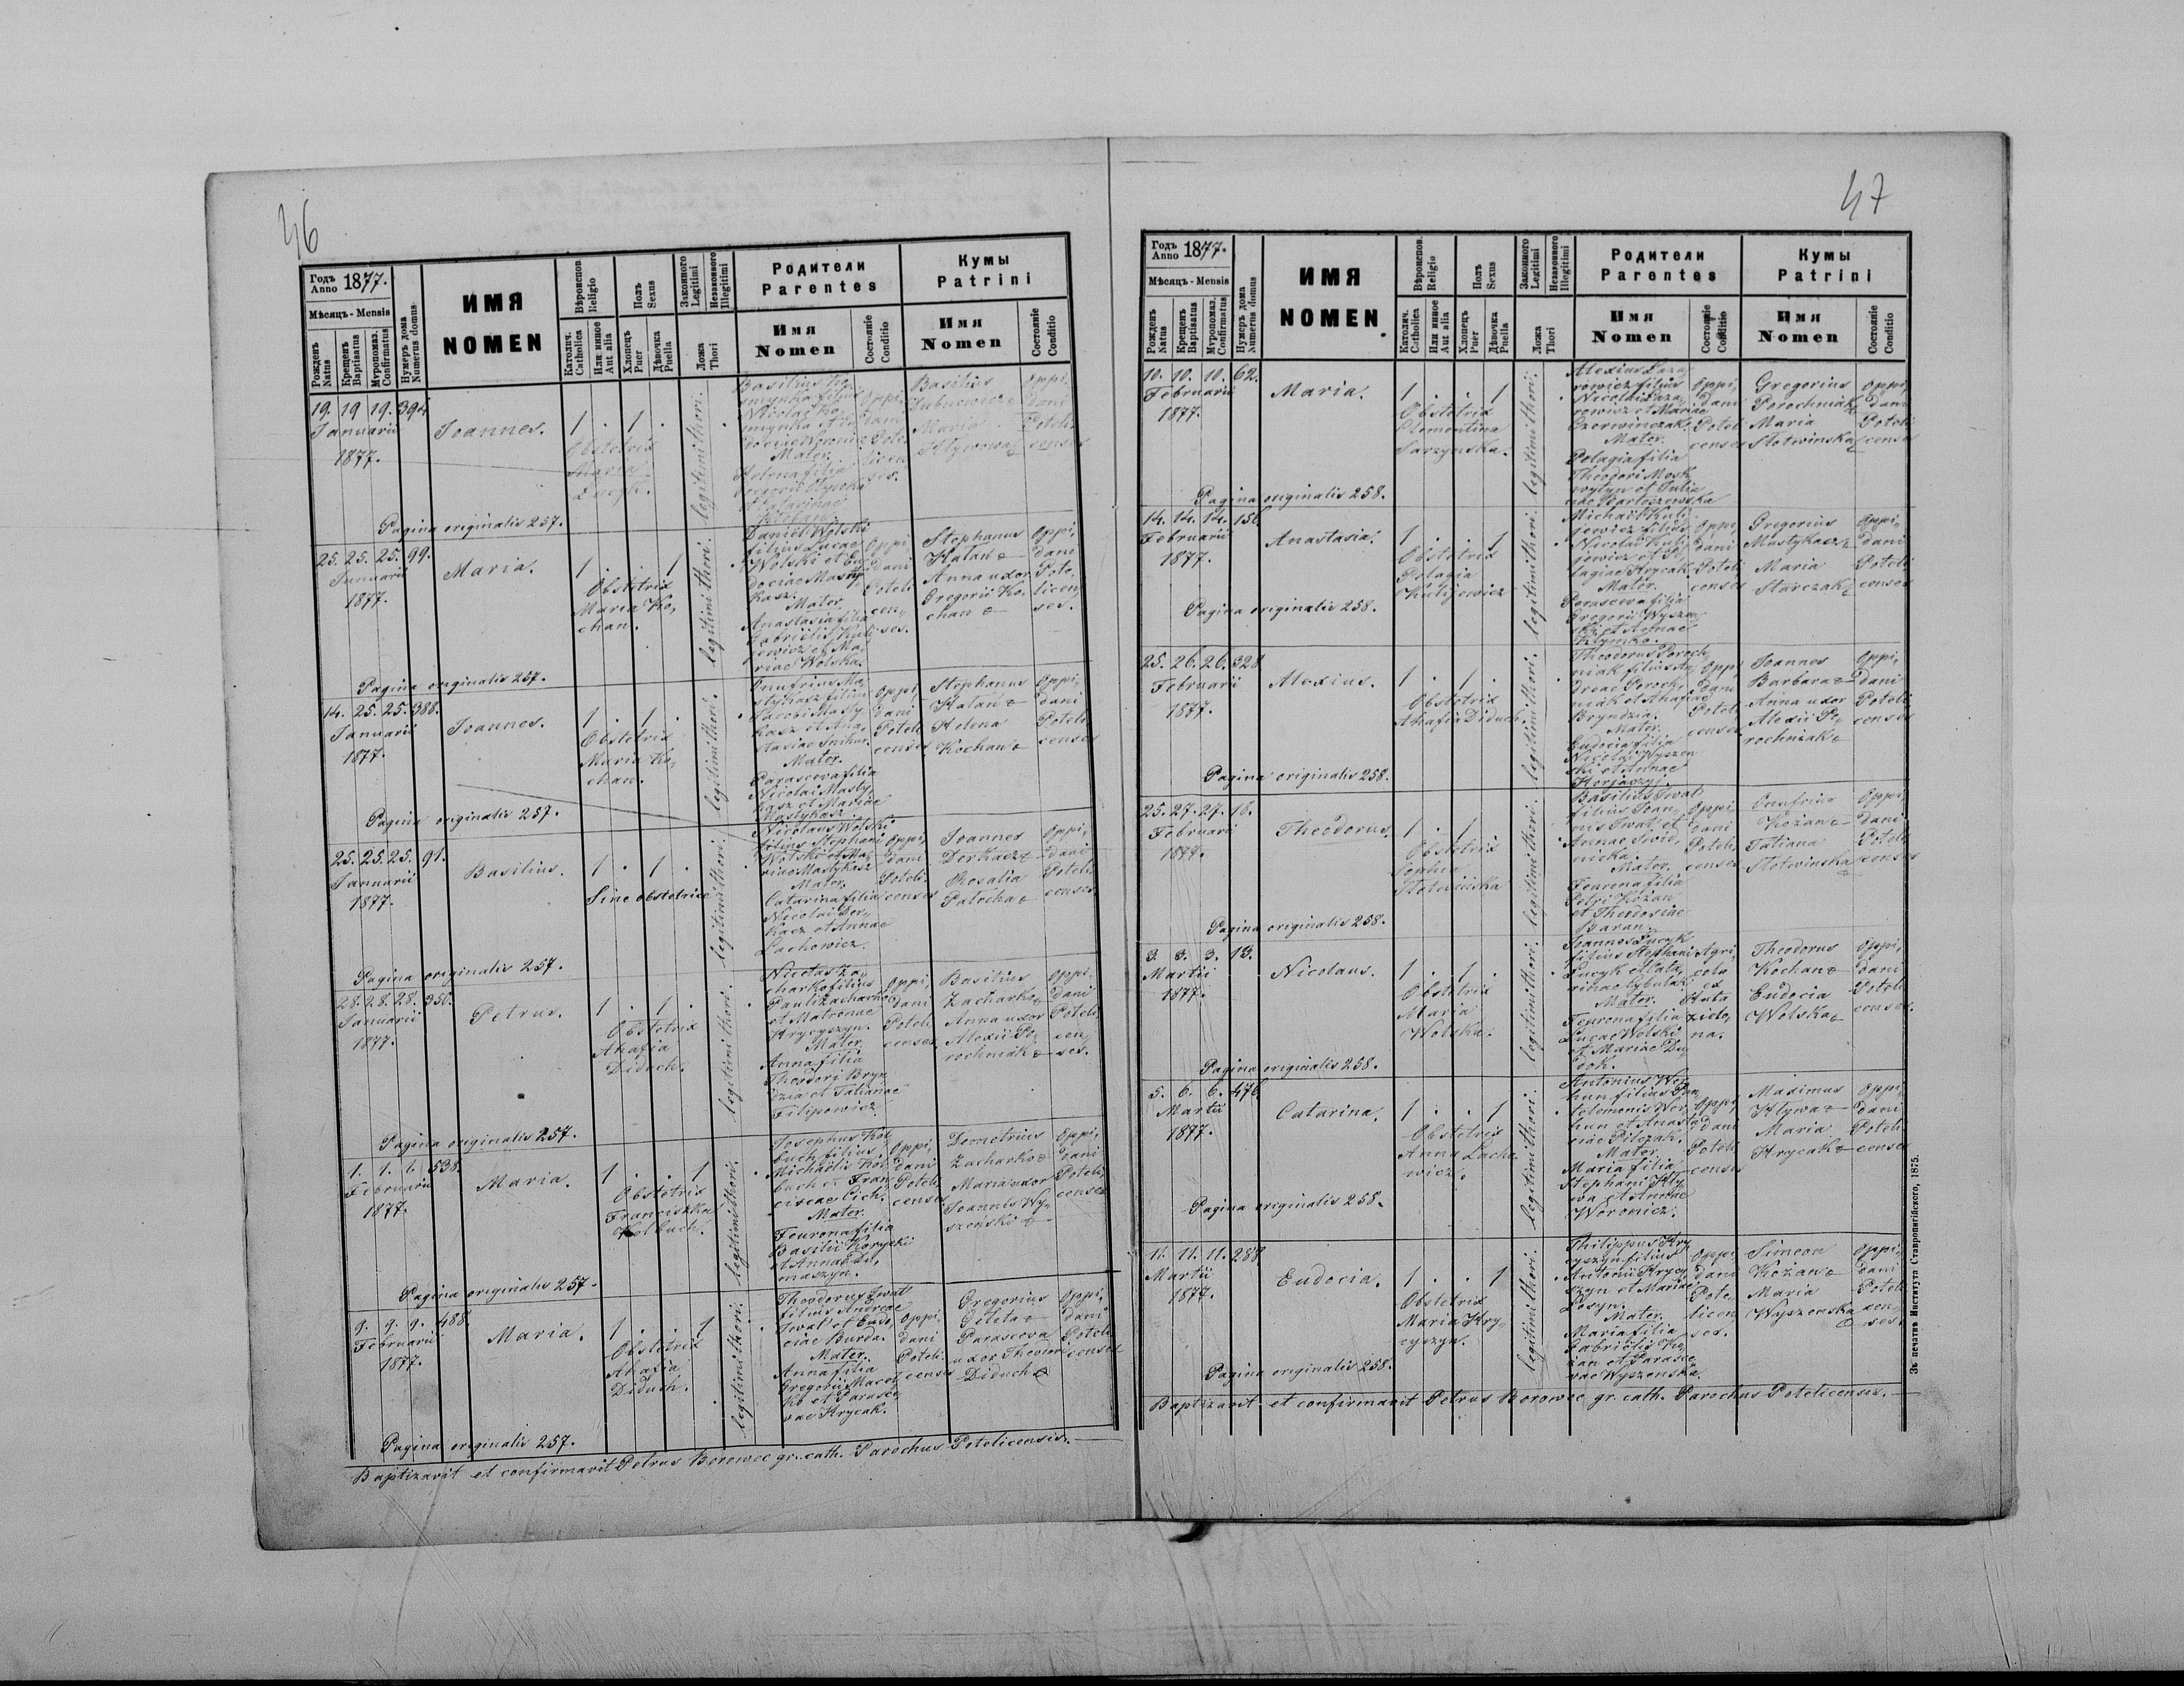 46
Годъ Anno 1877.
Мѣсяцъ - Mensis
Рожденъ Natus
Крещенъ Baptisatus
Мѵропомаз. Confirmatus
Нумеръ дома Numerus domus
ИМЯ
NOMEN
Вѣроисповѣд. Religio
Католич. Catholica
Или иное Aut alia
Полъ Sexus
Хлопець Puer
Дѣвочка Puella
Законного Legitimi
Незаконного Illegitimi
Ложа Thori
Родители
Parentes
Имя
Nomen
Состоянiе Conditio
Кумы
Patrini
Имя
Nomen
Состоянiе Conditio
19. 19 19. 394
Januarii
1877.
Joannes.
1 . 1 .
Obstetrix
Maria
legitimi thori.
Basilius
filius
Nicolai
Mater.
Helena filia
Gregorii
Basilius
Maria
Oppi,
dani
Poteli,
censes
Pagina originalis 257.
25. 25. 25. 99.
Januarii
1877.
Maria.
1 . . 1
Obstetrix
Maria Ko,
chan.
legitimi thori.
Daniel Wolski
filius Lucae
Wolski et Eu,
dociae Masty
kasz.
Mater.
Anastasia filia
Gabrielis Kuli
jewicz et Ma,
riae Wolska.
Oppi,
dani
Poteli
cen,
ses.
Stephanus
Kalan
Anna uxor
Gregorii Ko,
chan
Oppi,
dani
Pote,
licen,
ses.
Pagina originalis 257.
14. 25. 25. 388.
Januarii
1877.
Joannes.
1 . 1 .
Obstetrix
Maria Ko,
chan.
legitimi thori.
Onufrius Ma,
stykasz filius
Jacobi Masty
kasz et Ana,
stasiae
Mater.
Parasceva filia
Nicolai Masty,
kasz et Mariae
Mastykasz.
Oppi,
dani
Poteli,
censes
Stephanus
Kalan
Helena
Kochan
Oppi,
dani
Poteli,
censes
Pagina originalis 257.
25. 25. 25. 91.
Januarii
1877.
Basilius.
1 . 1 .
Sine obstetrice
legitimi thori.
Nicolaus Wolski
filius Stephani
Wolski et Ma,
riae Mastykasz
Mater.
Catarina filia
Nicolai Der,
kacz et Annae
Lachowicz.
Oppi,
dani
Poteli,
censes
Joannes
Derkacz
Rosalia
Patocha
Oppi,
dani
Poteli,
censes
Pagina originalis 257.
28. 28. 28. 350.
Januarii
1877.
Petrus.
1 . 1 .
Obstetrix
Ahafia
Diduch.
legitimi thori.
Nicolas Za,
charko filius
Pauli Zacharko
et Matronae
Krycyszyn.
Mater.
Anna filia
Theodori Bryn
dzia et Tatianae
Filipowicz.
Oppi,
dani
Poteli,
censes
Basilius
Zacharko
Anna uxor
Alexii Po,
rochniak
Oppi,
dani
Poteli,
cen,
ses.
Pagina originalis 257.
1. 1. 1. 538.
Februarii
1877.
Maria.
1 . . 1
Obstetrix
Franciszka
Kolbuch.
legitimi thori.
Josephus Kol
buch filius
Michaelis Kol,
buch et Fran,
ciscae Cich.
Mater.
Feurona filia
Basilii Korycki
et Annae Du,
maszyn.
Oppi,
dani
Poteli,
censes
Demetrius
Zacharko
Maria uxor
Joannis Wy,
szeński
Oppi,
dani
Poteli,
censes
Pagina originalis 257.
9. 9. 9. 488.
Februarii
1877.
Maria.
1 . . 1
Obstetrix
Ahafia
Diduch.
legitimi thori.
Theodorus Iwat
filius Andreae
Iwat et
Burda.
Mater.
Anna filia
Gregorii Macej
ko et Parasce
vae Hrycak.
Oppi,
dani
Poteli.
censes
Gregorius
Gileta
Parasceva
uxor
Diduch
Oppi,
dani
Poteli
censes
Pagina originalis 257.
Baptizavit et confirmavit Petrus Borowec gr. cath. Parochus Potelicensis.
47
Годъ Anno 1877.
Мѣсяцъ - Mensis
Рожденъ Natus
Крещенъ Baptisatus
Мѵропомаз. Confirmatus
Нумеръ дома Numerus domus
ИМЯ
NOMEN
Вѣроисповѣд. Religio
Католич. Catholica
Или иное Aut alia
Полъ Sexus
Хлопець Puer
Дѣвочка Puella
Законного Legitimi
Незаконного Illegitimi
Ложа Thori
Родители
Parentes
Имя
Nomen
Состоянiе Conditio
Кумы
Patrini
Имя
Nomen
Состоянiе Conditio
10. 10. 10. 62.
Februarii
1877.
Maria.
1 . . 1
Obstetrix
Clementina
Sarzynska.
legitimi thori.
Alexius Laza,
rowicz filius
Nicolai Laza,
rowicz et Mariae
Czerwinczak.
Mater.
Pelagia filia
Theodori Mosk
wytyn et Julia
nae Bartoszewska
Oppi,
dani
Poteli
censes
Gregorius
Porochniak
Maria
Slotwinska
Oppi,
dani
Poteli
censes
Pagina originalis 258.
14. 14. 14. 156.
Februarii
1877.
Anastasia.
1 . . 1
Obstetrix
Pelagia
Kulijewicz
legitimi thori.
Michail Kuli
jewicz filius
Nicolai Kuli
jewicz et Pe,
lagiae Hrycak.
Mater.
Parasceva filia
Gregorii Wyszen
ski et Annae
Klymko.
Oppi,
dani
Poteli
censes
Gregorius
Mastykasz
Maria
Starczak
Oppi,
dani
Poteli
censes
Pagina originalis 258.
25. 26. 26. 328
Februarii
1877.
Alexius.
1 . 1 .
Obstetrix
Ahafia Diduch.
legitimi thori.
Theodorus Poroch
niak filius An,
dreae Poroch,
niak et Ahafiae
Bryndzia.
Mater.
Eudocia filia
Nicolai Wyszen
ski et Annae
Oppi,
dani
Poteli,
censes
Joannes
Barbara
Anna uxor
Alexii Po,
rochniak
Oppi,
dani
Poteli
censes
Pagina originalis 258.
25. 27. 27. 16.
Februarii
1877.
Theodorus.
1 . 1 .
Obstetrix
Sophia
Slotwińska
legitimi thori.
Basilius Iwat
filius Joan,
nis Iwat, et
Annae Swid,
nicka.
Mater.
Feurona filia
Petri Kożan
et Theodosiae
Baran.
Oppi,
dani
Poteli,
censes
Onufrius
Kożan
Tatiana
Slotwinska
Oppi,
dani
Poteli,
censes
Pagina originalis 258.
3. 3. 3. 13.
Martii
1877.
Nicolaus.
1 . 1 .
Obstetrix
Maria
Wolska.
legitimi thori.
Joannes Lucyk
filius Stephani
Lucyk et Cata,
rinae Cybulak.
Mater.
Feurona filia
Lucae Wolski
et Mariae Du,
doh.
Agri,
cola
ex
Huta
zielo,
na.
Theodorus
Kochan
Eudocia
Wolska
Oppi,
dani
Poteli
censes.
Pagina originalis 258.
5. 6. 6. 476
Martii
1877.
Catarina.
1 . . 1
Obstetrix
Anna Lacho,
wicz.
legitimi thori.
Antonius Wer,
hun filius Pan,
telemonis Wer,
hun et Anasta
ciae Pilczak.
Mater.
Maria filia
Stephani Kly,
wa et Annae
Woronicz.
Oppi,
dani
Poteli
censes
Maximus
Klywa
Maria
Hrycak
Oppi,
dani
Poteli
censes
Pagina originalis 258.
11. 11. 11. 288
Martii
1877.
Eudocia.
1 . . 1
Obstetrix
Maria Kry,
cyszyn.
legitimi thori.
Philippus Kry
cyszyn filius
Antonii Krycy
szyn et Mariae
Losyn.
Mater.
Maria filia
Gabrielis Ko,
żan et Parasce
vae Wyszenska.
Oppi,
dani
Pote,
licen
ses.
Simeon
Kożan
Maria
Wyszenska
Oppi,
dani
Poteli
cen,
ses.
Pagina originalis 258.
Baptizavit et confirmavit Petrus Borowec gr. cath. Parochus Potelicensis.
Зъ печатнѣ Института Ставропигійского, 1875.